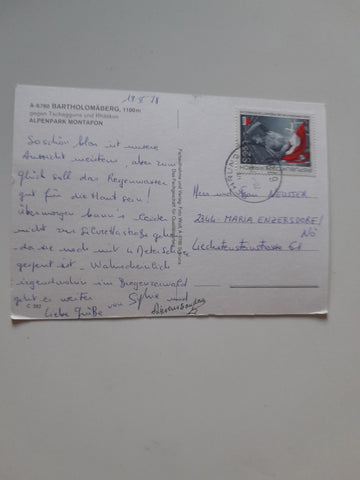 19.5.78
A-6780 BARTHOLOMÄBERG, 1100 m
gegen Tschagguns und Rhätikon
ALPENPARK MONTAFON
So schön blau ist unsere
Aussicht meistens, aber zum
Glück soll das Regenwasser
gut für die Haut sein!
Übermorgen kann's leider
nicht zur Silvrettastraße gehen
da sie noch mit 4 Meter Schnee
gesperrt ist – Wahrscheinlich
irgendwohin im Bregenzerwald
geht es weiter
Liebe Grüße von Sylvia und
C 382
Herrn und Frau
2344 - MARIA ENZERSDORF/
NÖ
Liechtensteinstrasse 61